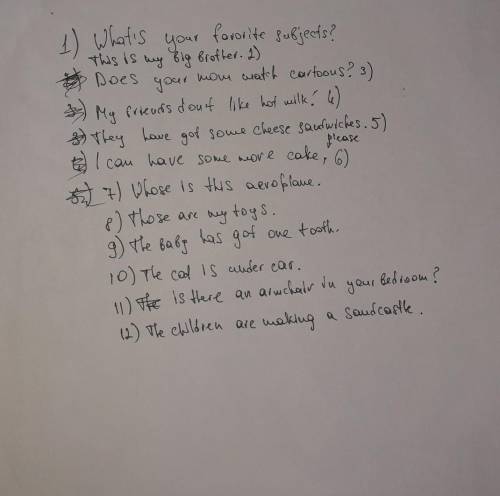 1) What's your favorite subjects?
This is my big brother. 2)
Does your mom watch cartoons? 3)
My friends dont like hot milk! 4)
They have got some cheese sandwiches. 5)
I can have some more cake, please 6)
7) Whose is this aeroplane.
8) Those are my toys.
9) The baby has got one tooth.
10) The cat is under car.
11) Is there an armchair in your bedroom?
12) The children are making a sandcastle.